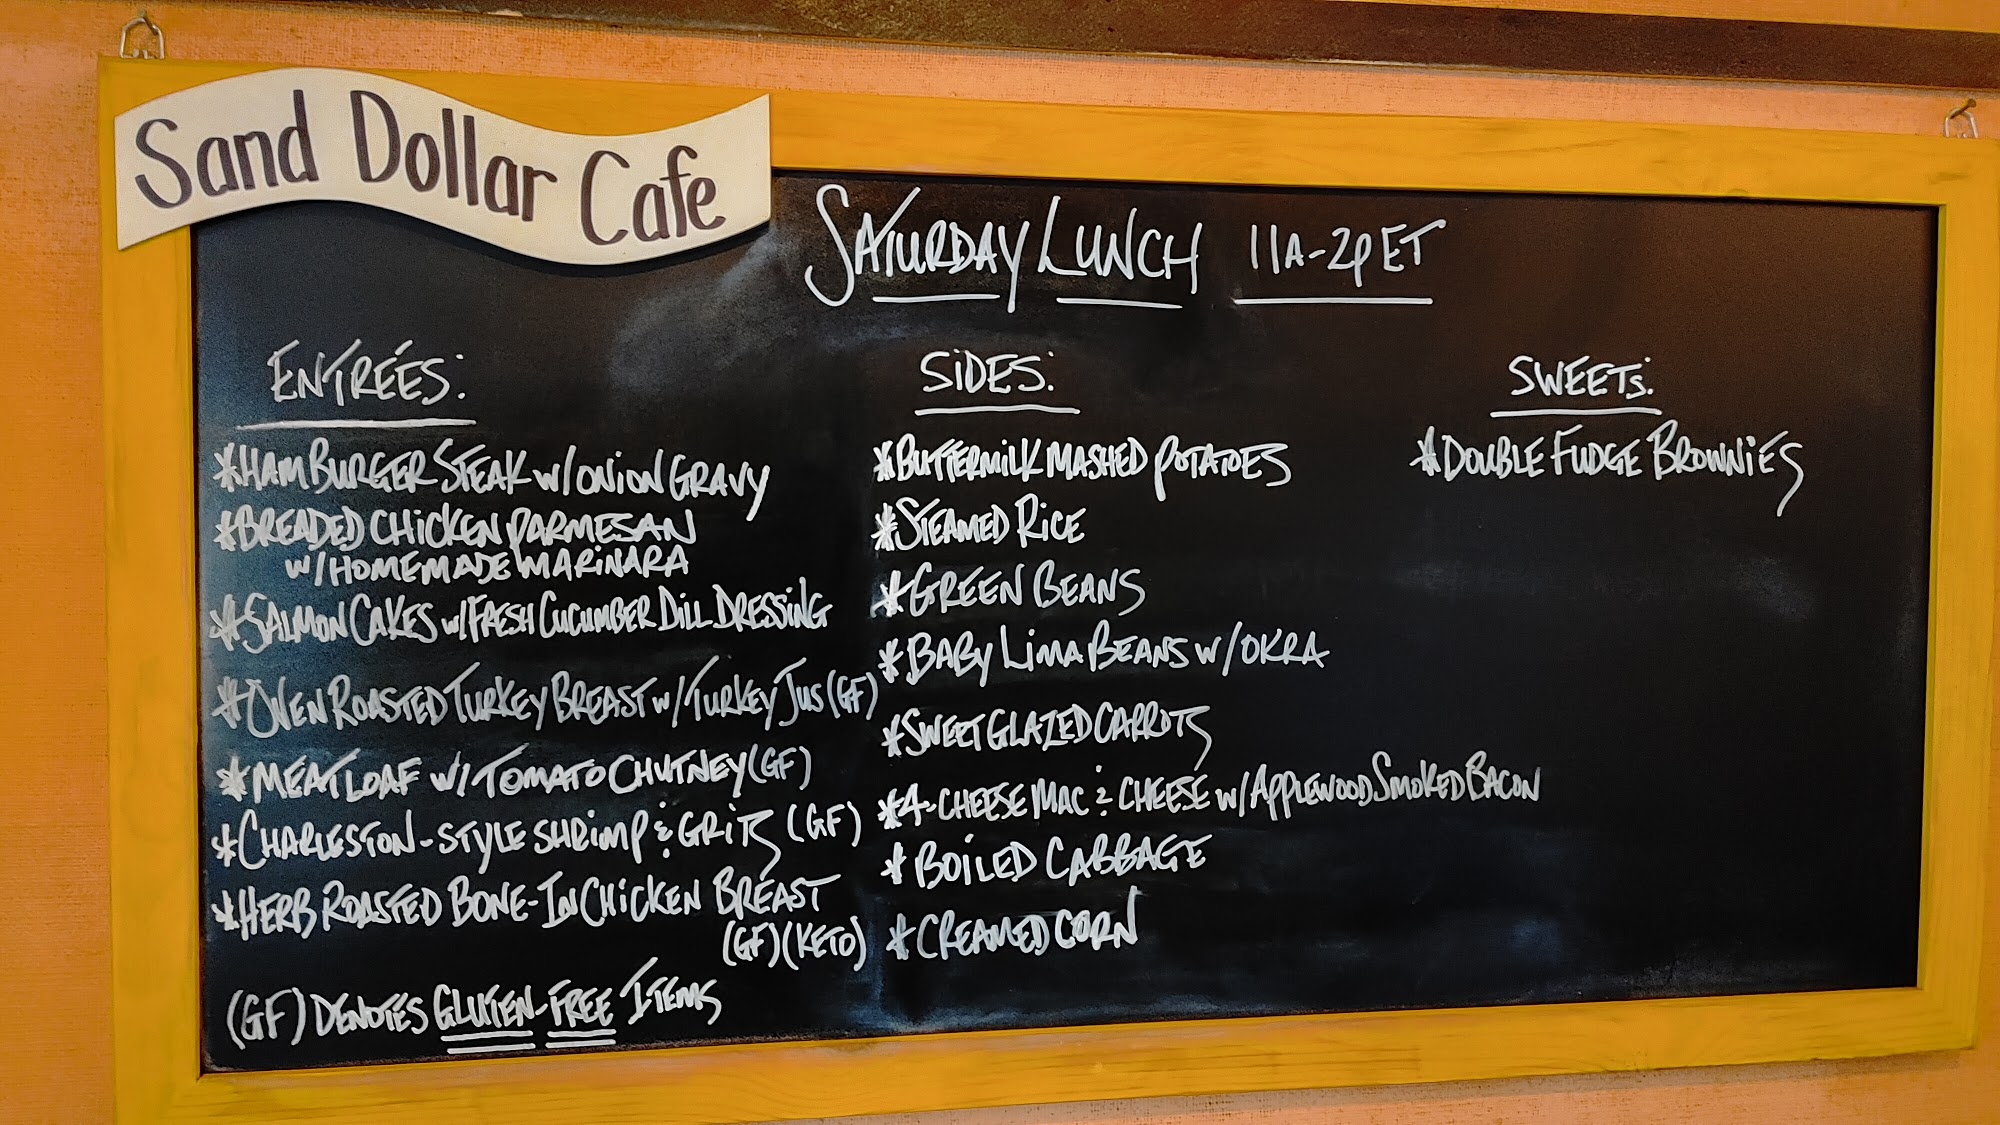 Sand Dollar Cafe
SATURDAY LUNCH 11A-2P ET
ENTRÉES:
*HAMBURGER STEAK W/ONION GRAVY
*BREADED CHICKEN PARMESAN
W/HOMEMADE MARINARA
*SALMON CAKES W/FRESH CUCUMBER DILL DRESSING
*OVEN ROASTED TURKEY BREAST W/TURKEY JUS (GF)
*MEATLOAF W/TOMATO CHUTNEY (GF)
*CHARLESTON-STYLE SHRIMP & GRITS (GF)
*HERB ROASTED BONE-IN CHICKEN BREAST
(GF)(KETO)
(GF) DENOTES GLUTEN-FREE ITEMS
SIDES:
*BUTTERMILK MASHED POTATOES
*STEAMED RICE
*GREEN BEANS
*BABY LIMA BEANS W/OKRA
*SWEET GLAZED CARROTS
*4-CHEESE MAC & CHEESE W/APPLEWOOD SMOKED BACON
*BOILED CABBAGE
*CREAMED CORN
SWEETS:
*DOUBLE FUDGE BROWNIES